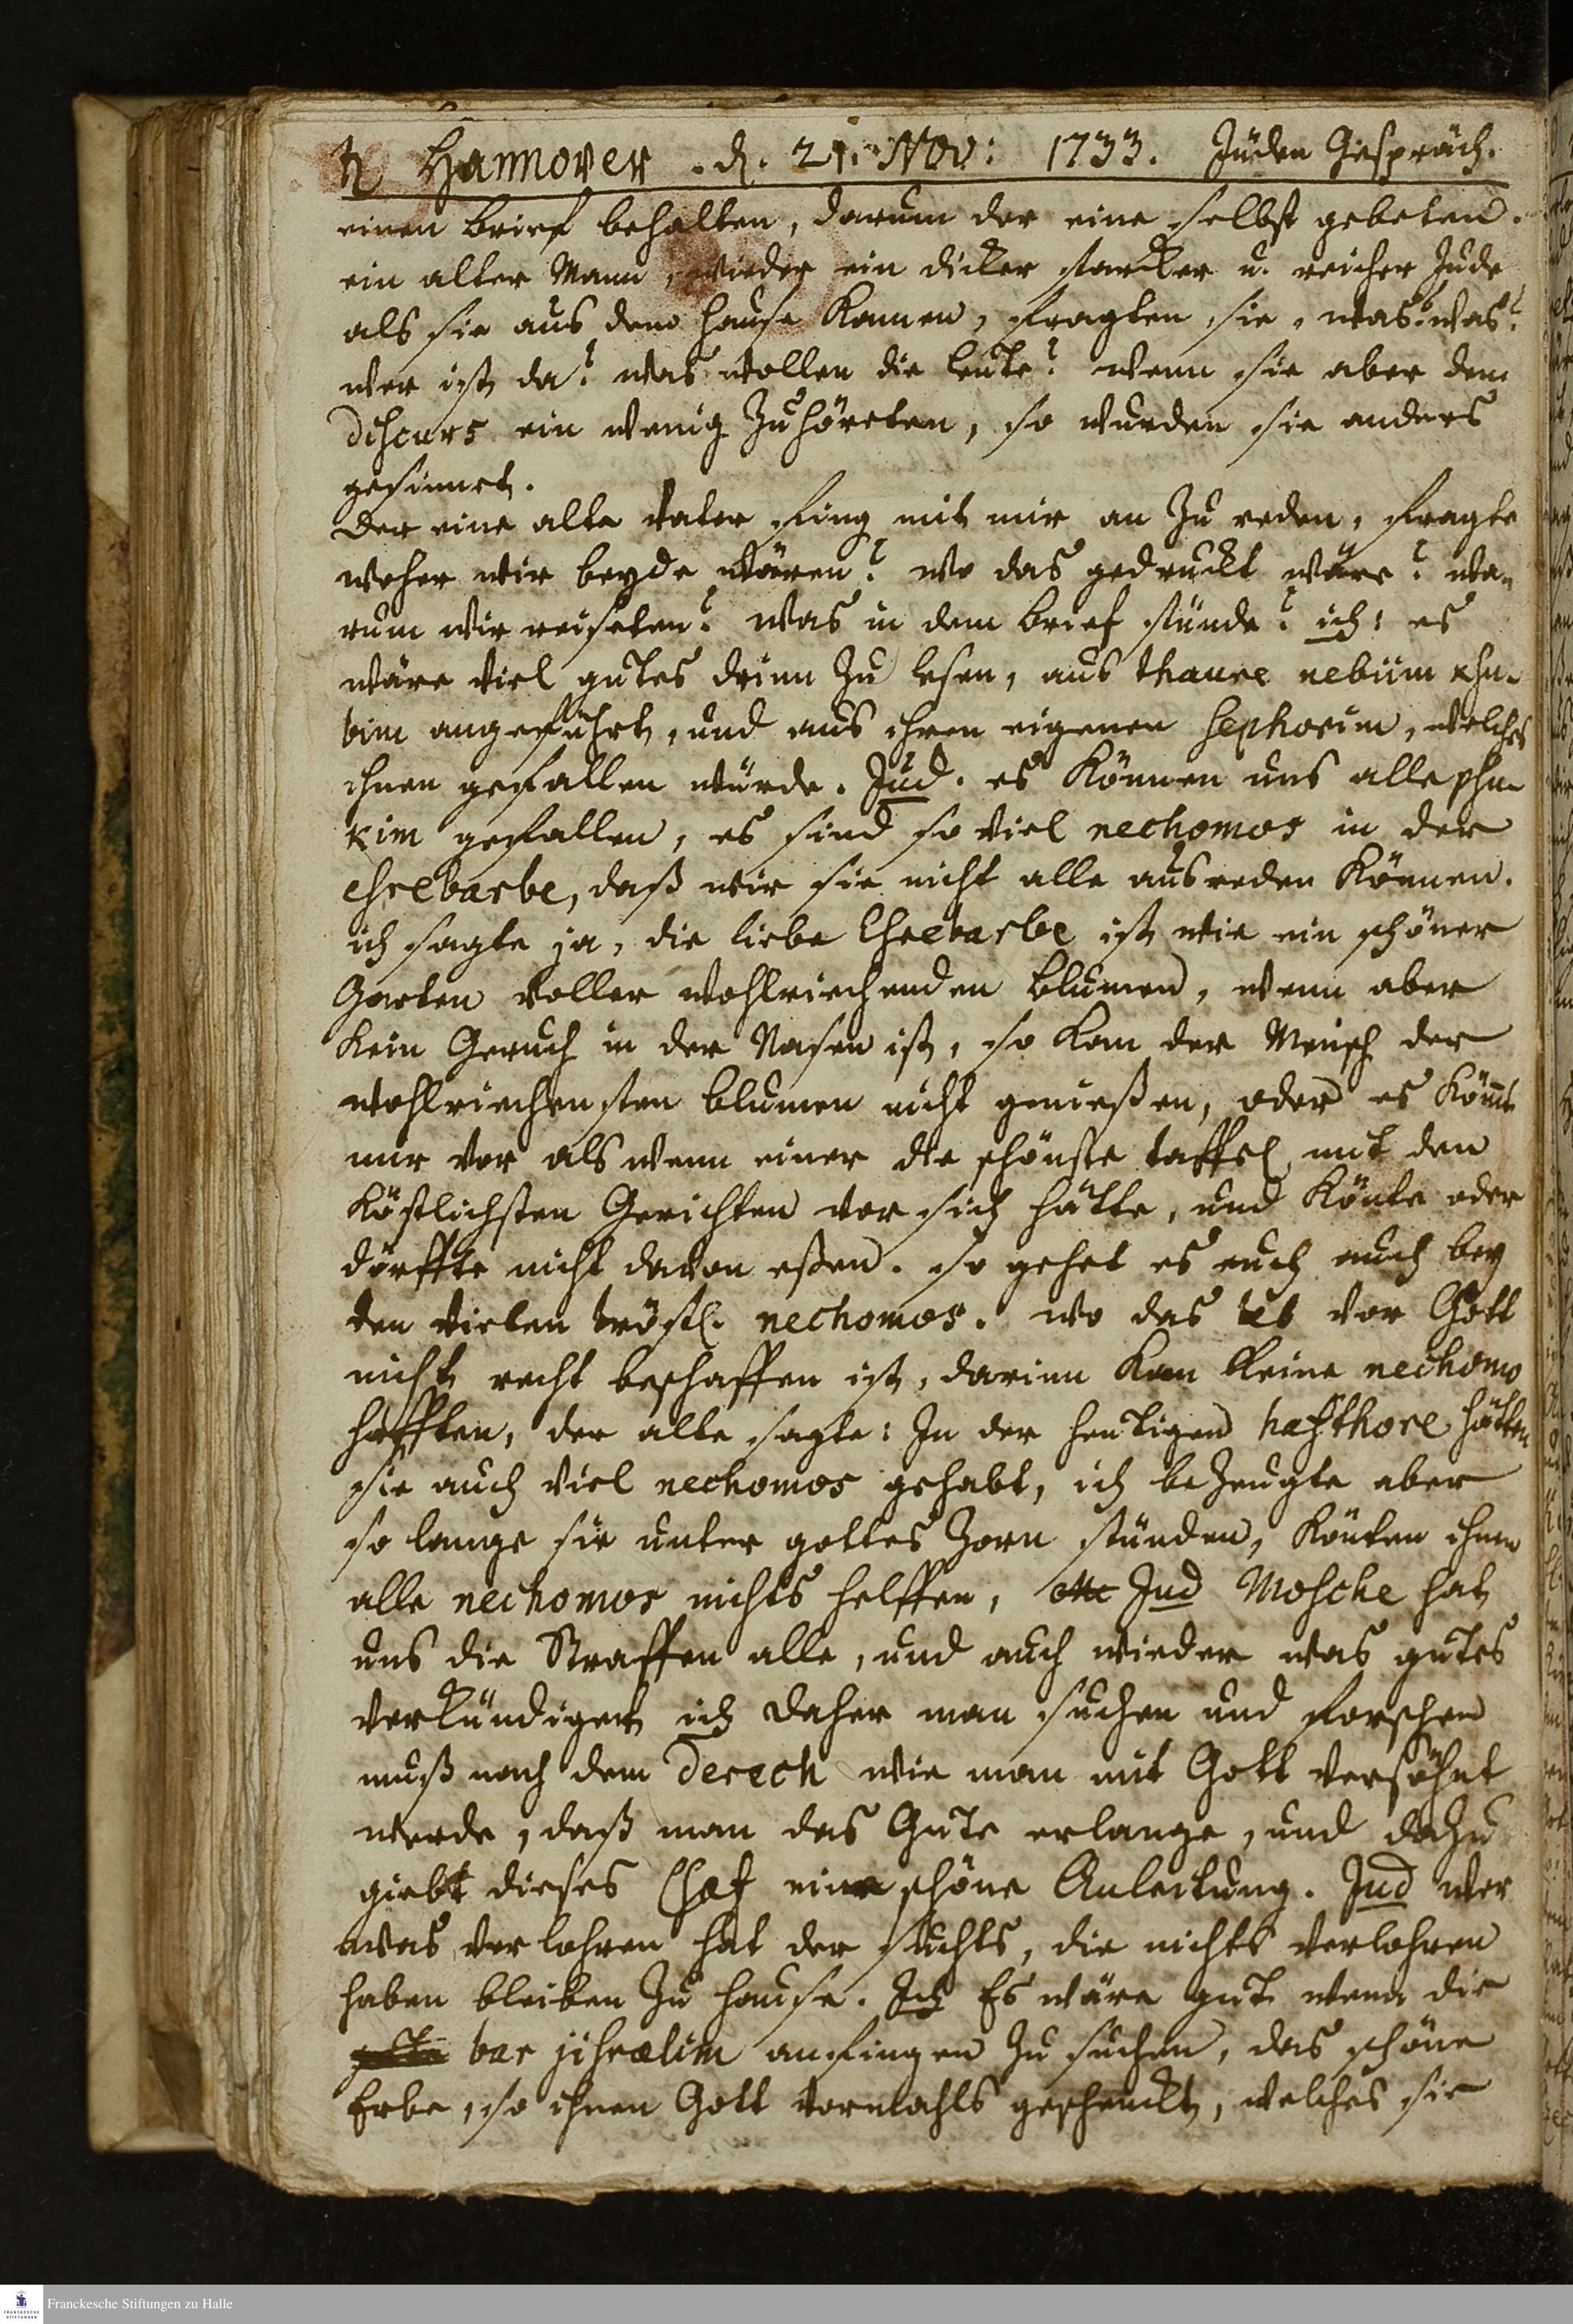 ♄ Hannover. d. 21. Nov: 1733. Juden Gespräch.
einen brief behalten, darum der eine selbst gebeten.
ein alter Mann, wieder ein dicker starcker u. reicher Jude
als sie aus dem hause kamen, fragten sie, was? was?
wer ist da? was wollen die leute? wenn sie aber dem
discurs ein wenig zuhöreten, so wurden sie anders
gesinnet.
der eine alte vater fing mit mir an zu reden, fragte
woher wir beyde wären? wo das gedruckt wäre? wa-
rum wir reiseten? was in dem brief stünde? ich: es
wäre viel gutes drinn zu lesen, aus thaure nebiim chsu-
bim angeführt, und aus ihren eigenen sephorim, welches
ihnen gefallen würde. Jud. es können uns alle psu-
kim gefallen, es sind so viel nechomos in der
esrebarbe, daß wir sie nicht alle ausreden können.
ich sagte ja, die liebe Esrebarbe ist wie ein schöner
Garten voller wohlriechenden blumen, wenn aber
kein Geruch in der Nasen ist, so kan der Mensch der
wohlriechensten blumen nicht genießen, oder es kömt
mir vor als wenn einer die schönste taffel mit den
köstlichsten Gerichten vor sich hätte, und könte oder
dörffte nicht davon eßen. so gehet es euch auch bey
den vielen tröstl. nechomos. wo das leb vor Gott
nicht recht beschaffen ist, darinn kan keine nechomo
hafften, der alte sagte: In der heutigen hafthore hätten
sie auch viel nechomos gehabt, ich bezeugte aber
so lange sie unter gottes Zorn stünden, könten ihnen
alle nechomos nichts helffen, Jud Mosche hat
uns die Straffen alle, und auch wieder was gutes
verkündiget ich daher man suchen und forschen
muß nach dem derech wie man mit Gott versöhnt
werde, daß man das Gute erlange, und dazu
giebt dieses eine schöne Anleitung. Jud wer
was verlohren hat der suchts, die nichts verlohren
haben bleiben zu hause. Ich Es wäre gut wenn die
bar jisraelim anfingen zu suchen, das schöne
Erbe, so ihnen Gott vormahls geschenckt, welches sie
FRANCKESCHE STIFTUNGEN
Franckesche Stiftungen zu Halle